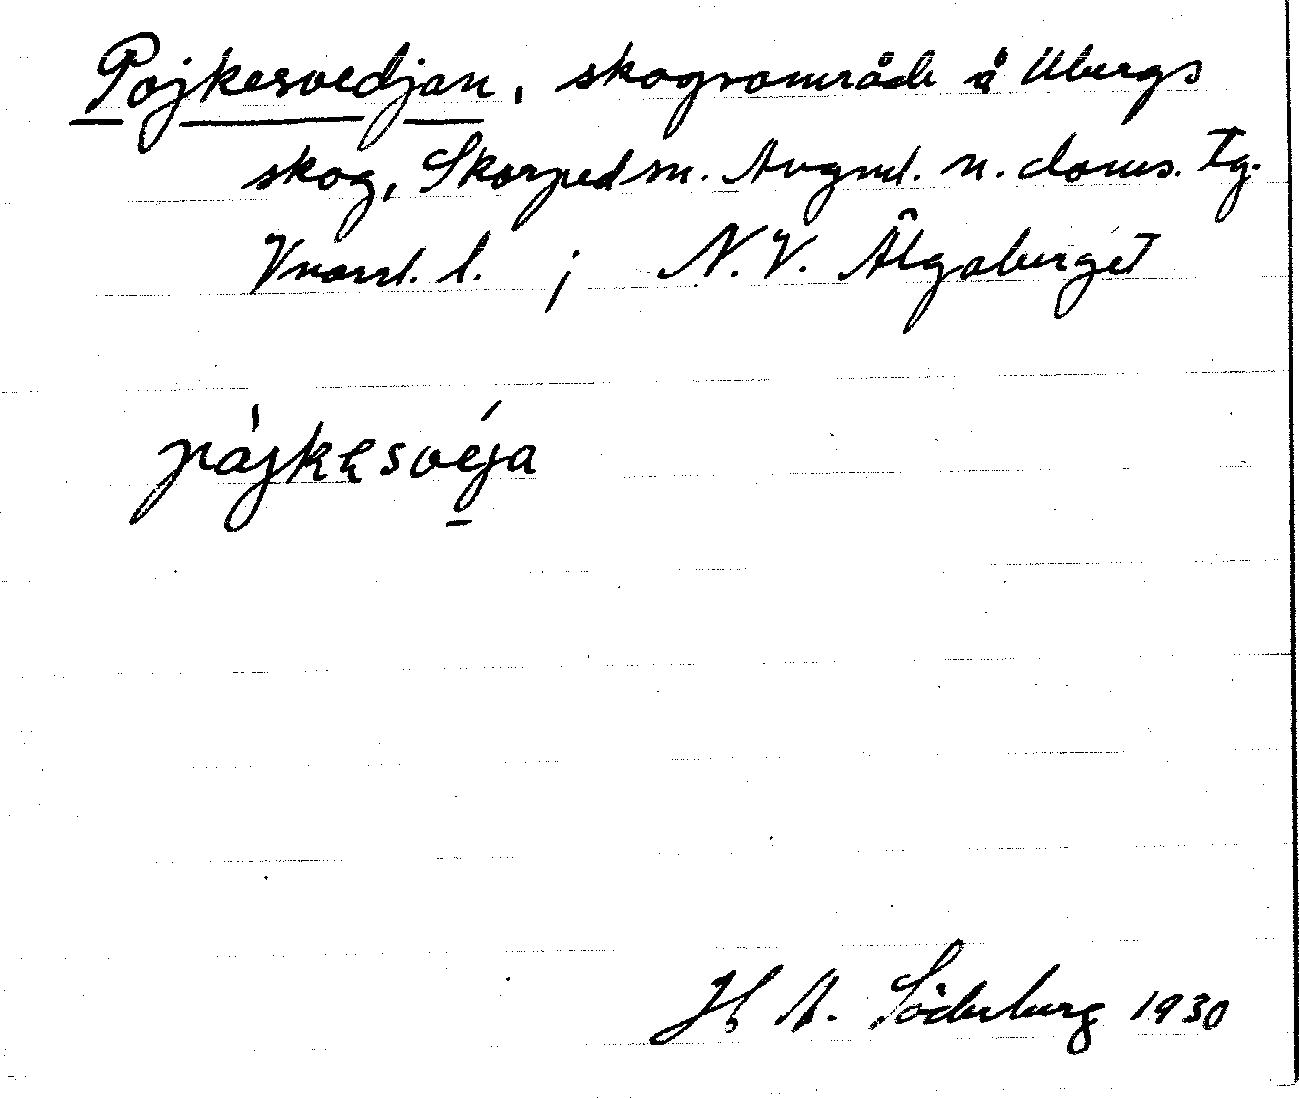 Pojkesvedjan, skogsområde å Ubergs
skog, Skorped sn. Ångml. n. doms. Tg.
Vnorrl. l. ; N.V. Älgaberget
pájkesvéja
H A. Söderberg 1930